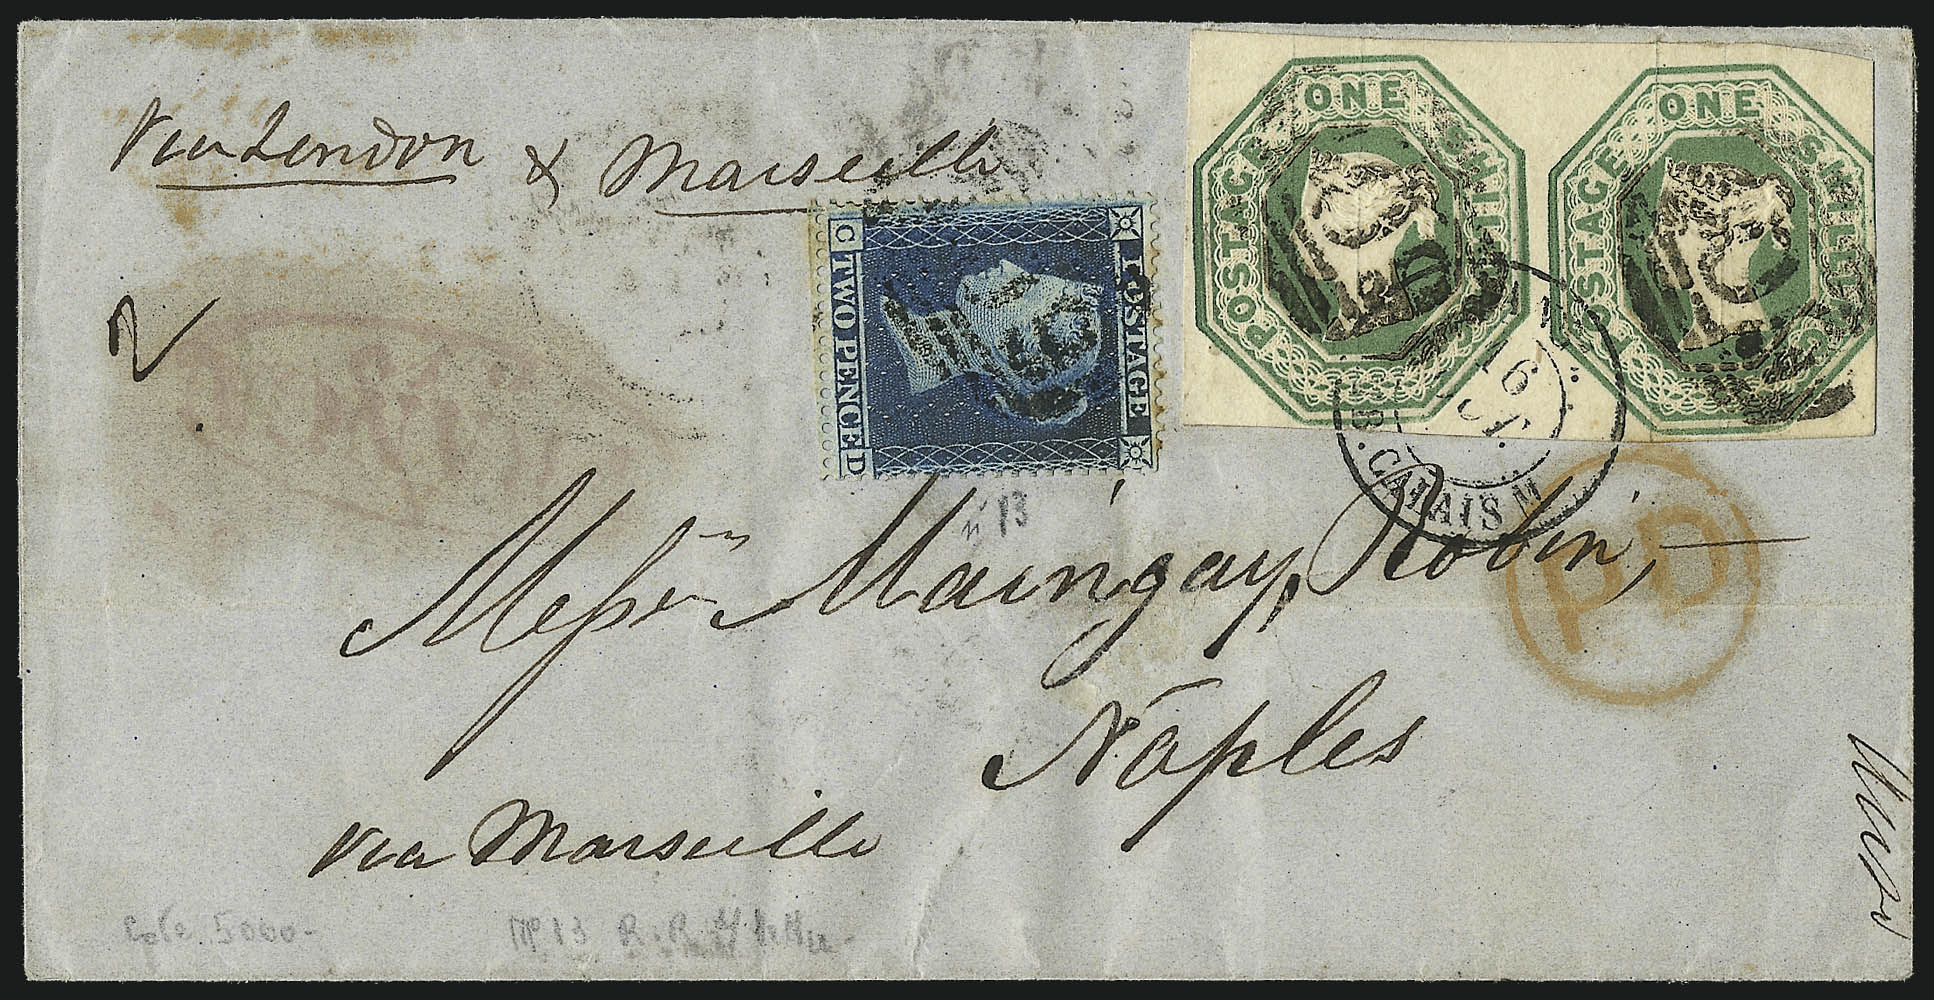 Via London & Marseille
ONE SHILLING
POSTAGE
ONE SHILLING
POSTAGE
POSTAGE
C TWO PENCE D
2
16
CALAIS
PD
n 13
Messrs Maingay, Robin,
Naples
via Marseille
Cote 5000-
No 13